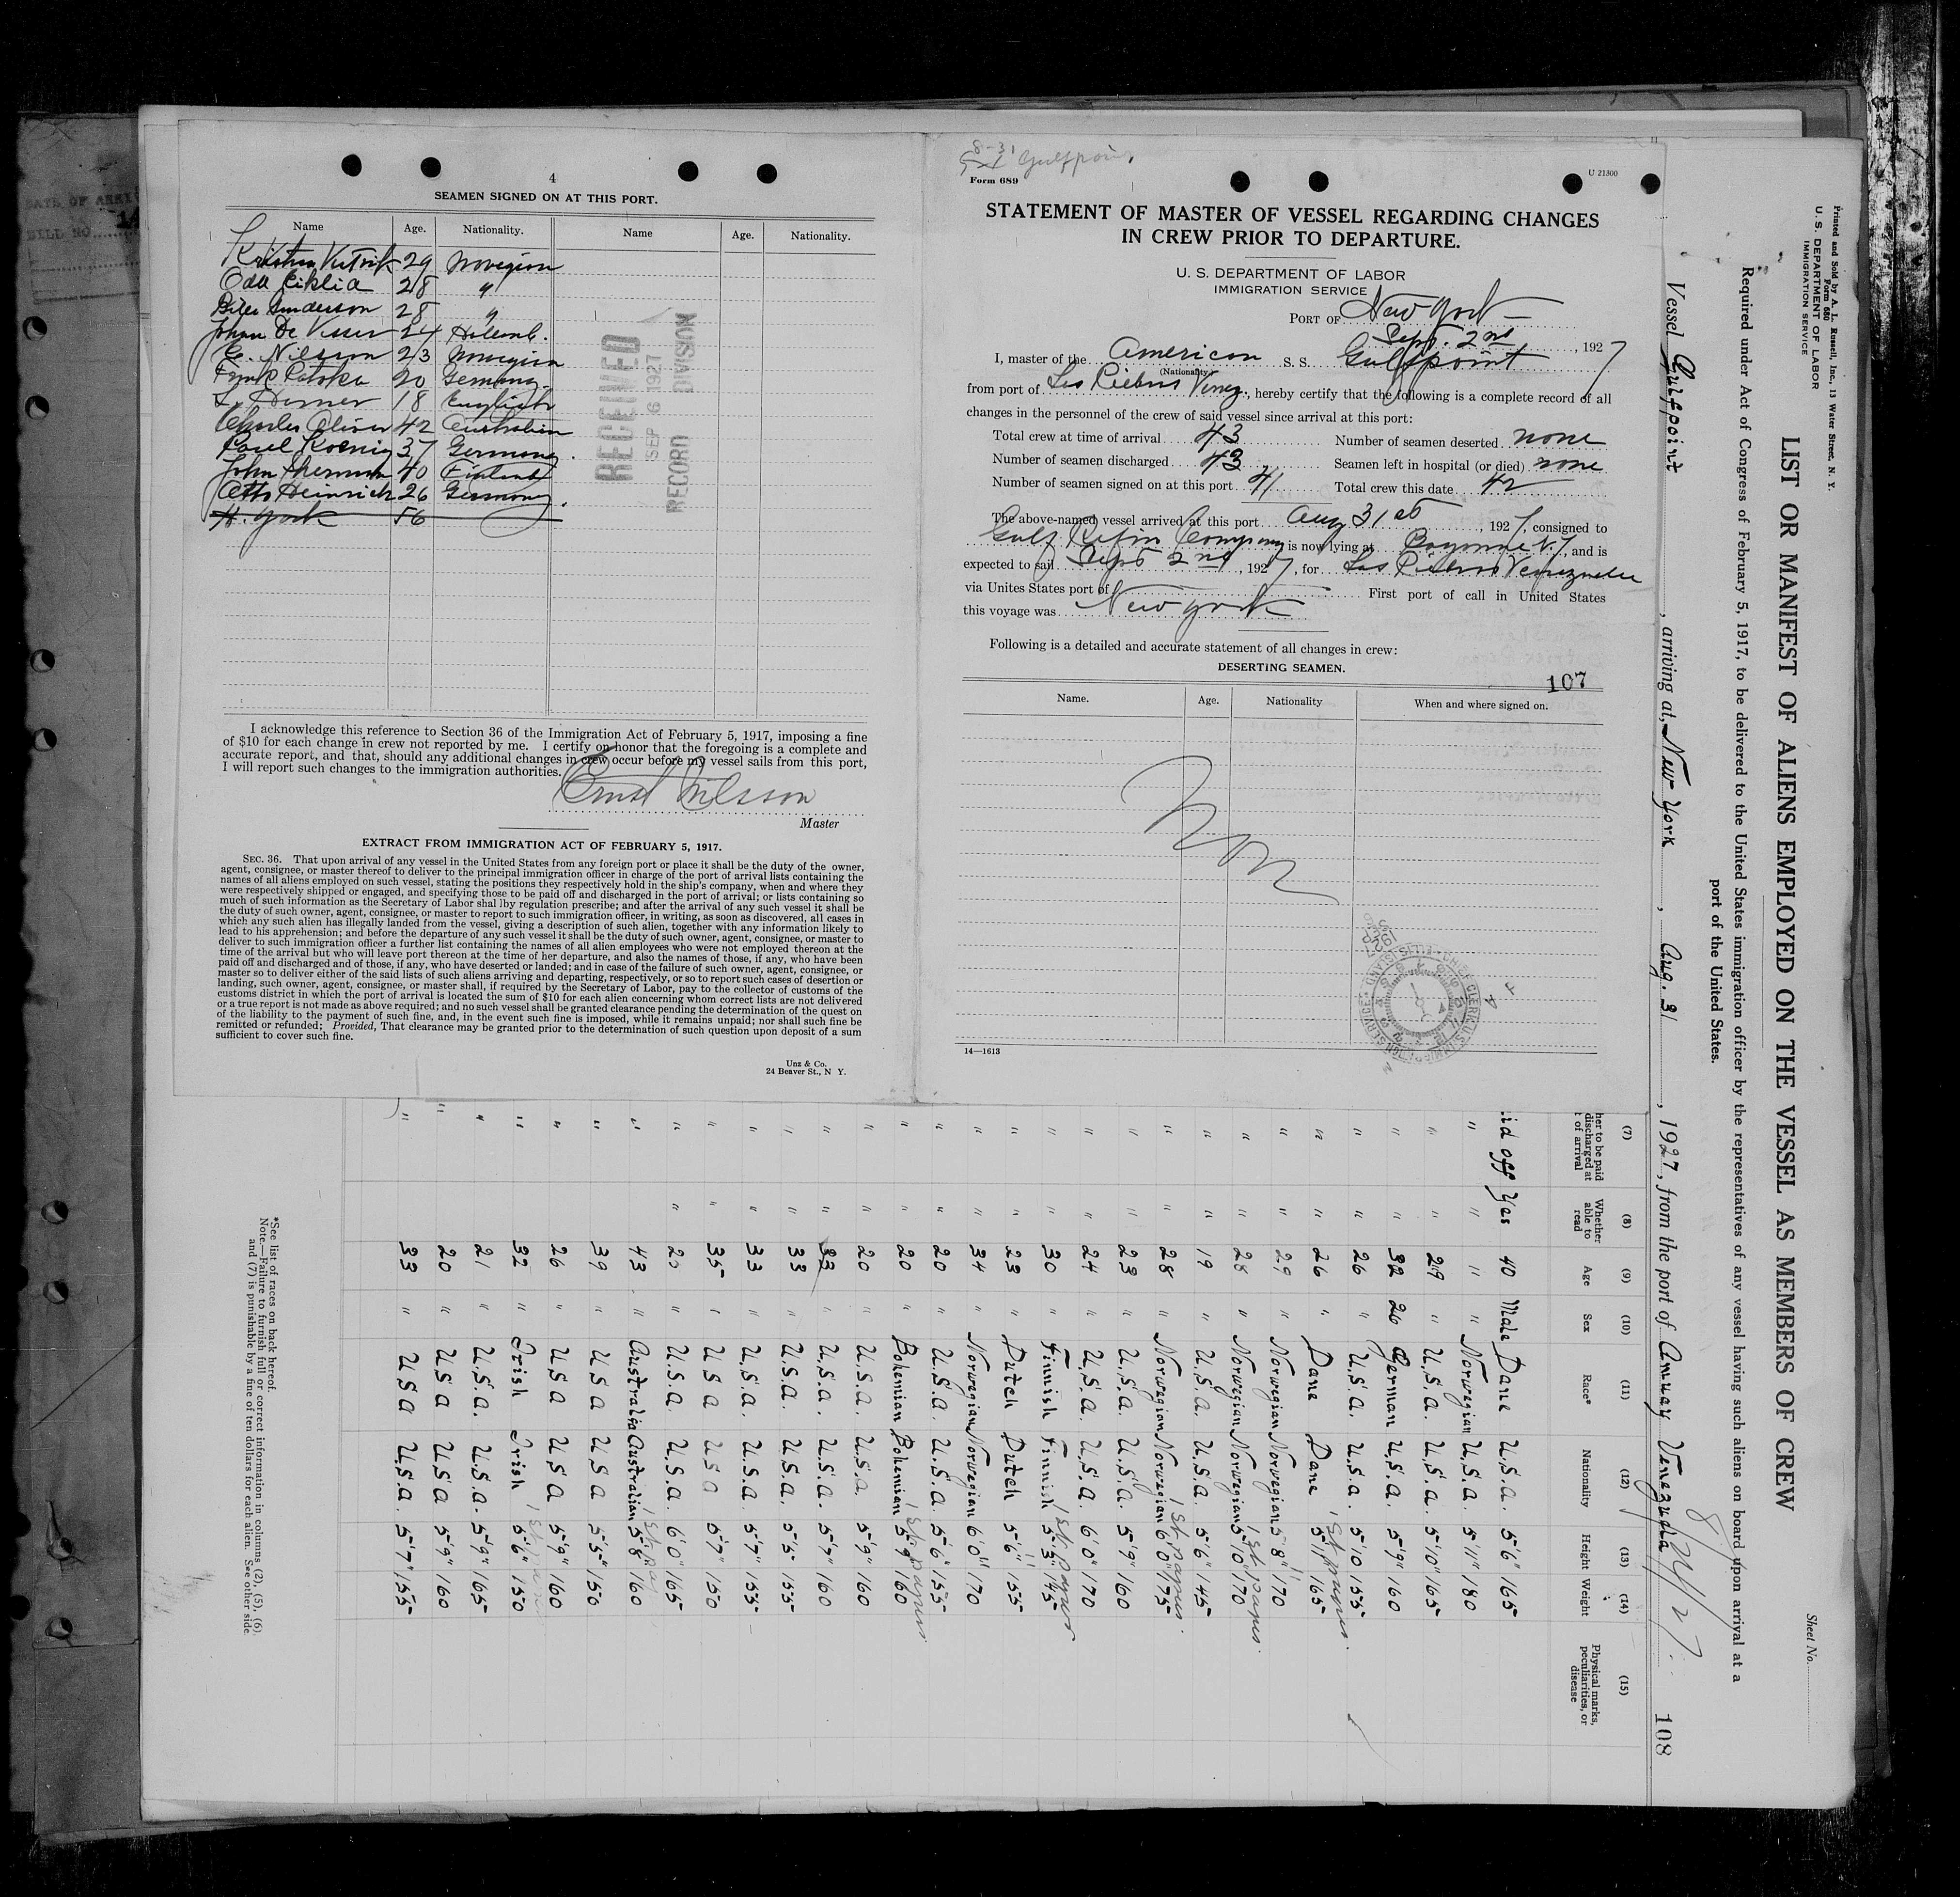 4
SEAMEN SIGNED ON AT THIS PORT.
Name Age. Nationality. Name Age. Nationality.
29 Norvegion
Odd Eiklid 28 "
Anderson 28 "
Johan De Visser 24
E. Nilsson 23 Norvegion
20 Germany
18 English
Charles Oliver 42 Australian
Paul Koenig 37 Germany.
John Sherman 40 Finland
Otto Heinrich 26 Germany.
H. York 56
RECEIVED
SEP 6 1927
RECORD DIVISION
I acknowledge this reference to Section 36 of the Immigration Act of February 5, 1917, imposing a fine
of $10 for each change in crew not reported by me. I certify on honor that the foregoing is a complete and
accurate report, and that, should any additional changes in crew occur before my vessel sails from this port,
I will report such changes to the immigration authorities.
Ernst Nilsson
Master
EXTRACT FROM IMMIGRATION ACT OF FEBRUARY 5, 1917.
SEC. 36. That upon arrival of any vessel in the United States from any foreign port or place it shall be the duty of the owner,
agent, consignee, or master thereof to deliver to the principal immigration officer in charge of the port of arrival lists containing the
names of all aliens employed on such vessel, stating the positions they respectively hold in the ship's company, when and where they
were respectively shipped or engaged, and specifying those to be paid off and discharged in the port of arrival; or lists containing so
much of such information as the Secretary of Labor shal lby regulation prescribe; and after the arrival of any such vessel it shall be
the duty of such owner, agent, consignee, or master to report to such immigration officer, in writing, as soon as discovered, all cases in
which any such alien has illegally landed from the vessel, giving a description of such alien, together with any information likely to
lead to his apprehension; and before the departure of any such vessel it shall be the duty of such owner, agent, consignee, or master to
deliver to such immigration officer a further list containing the names of all alien employees who were not employed thereon at the
time of the arrival but who will leave port thereon at the time of her departure, and also the names of those, if any, who have been
paid off and discharged and of those, if any, who have deserted or landed; and in case of the failure of such owner, agent, consignee, or
master so to deliver either of the said lists of such aliens arriving and departing, respectively, or so to report such cases of desertion or
landing, such owner, agent, consignee, or master shall, if required by the Secretary of Labor, pay to the collector of customs of the
customs district in which the port of arrival is located the sum of $10 for each alien concerning whom correct lists are not delivered
or a true report is not made as above required; and no such vessel shall be granted clearance pending the determination of the quest on
of the liability to the payment of such fine, and, in the event such fine is imposed, while it remains unpaid; nor shall such fine be
remitted or refunded; Provided, That clearance may be granted prior to the determination of such question upon deposit of a sum
sufficient to cover such fine.
Unz & Co.
24 Beaver St., N Y.
8-31
Gulfpoint
Form 689
U 21300
STATEMENT OF MASTER OF VESSEL REGARDING CHANGES
IN CREW PRIOR TO DEPARTURE.
U. S. DEPARTMENT OF LABOR
IMMIGRATION SERVICE
PORT OF New York
Sept. 2nd, 1927
I, master of the American S. S. Gulfpoint
(Nationality)
from port of Las Piedras Venez., hereby certify that the following is a complete record of all
changes in the personnel of the crew of said vessel since arrival at this port:
Total crew at time of arrival 43 Number of seamen deserted none
Number of seamen discharged 43 Seamen left in hospital (or died) none
Number of seamen signed on at this port 41 Total crew this date 42
The above-named vessel arrived at this port Aug 31st, 1927, consigned to
Gulf Refin Company is now lying at Bayonne N.J, and is
expected to sail Sept 2nd, 1927, for Las Piedras Venezuela
via Unites States port of First port of call in United States
this voyage was New York
Following is a detailed and accurate statement of all changes in crew:
DESERTING SEAMEN.
107
Name. Age. Nationality When and where signed on.
Non
14—1613
Printed and Sold by A. L. Russell, Inc., 13 Water Street, N. Y.
Form 680
U. S. DEPARTMENT OF LABOR
IMMIGRATION SERVICE
Sheet No.
LIST OR MANIFEST OF ALIENS EMPLOYED ON THE VESSEL AS MEMBERS OF CREW
Required under Act of Congress of February 5, 1917, to be delivered to the United States immigration officer by the representatives of any vessel having such aliens on board upon arrival at a
port of the United States.
8/24/27
Vessel Gulfpoint, arriving at New York, Aug. 31, 1927, from the port of Amuay Venezuela
108
(7) (8) (9) (10) (11) (12) (13) (14) (15)
her to be paid discharged at t of arrival Whether able to read Age Sex Race* Nationality Height Weight Physical marks, peculiarities, or disease
id off Yes 40 Male Dane U.S.a. 5'6" 165
" " " " Norwegian U.S.a. 5'11" 180
" " 29 " U.S.a. U.S.a. 5'10" 165
" " 32 26 German U.S.a. 5'9" 160
" " 26 " U.S.a. U.S.a. 5'10 155
" " 26 " Dane Dane 5'11" 165 1st papers.
" " 29 " Norwegian Norwegian 5'8" 170
" " 28 " Norwegian Norwegian 5'10" 170 1st papers.
" " 19 " U.S.a. U.S.a. 5'6" 145
" " 28 " Norwegian Norwegian 6'0" 175 1st papers.
" " 23 " U.S.a. U.S.a. 5'9" 160
" " 24 " U.S.a. U.S.a. 6'0" 170
" " 30 " Finnish Finnish 5'3" 145 1st papers
" " 23 " Dutch Dutch 5'6" 155
" " 34 " Norwegian Norwegian 6'0" 170
" " 20 " U.S.a. U.S.a. 5'6" 155
" " 20 " Bohemian Bohemian 5'9" 160 1st papers
" " 20 " U.S.a. U.S.a. 5'9" 160
" " 33 " U.S.a. U.S.a. 5'7" 160
" " 33 " U.S.a. U.S.a. 5'5" 155
" " 33 " U.S.a. U.S.a. 5'7" 155
" " 35 " U S a U S a 5'7" 150
" " 20 " U.S.a. U.S.a. 6'0" 165
" 43 " Australia Australian 5'8" 160
" 39 " U S a U S a 5'5" 150
" 26 " U S a U S a 5'9" 160
" 32 " Irish Irish 5'6" 150
" 21 " U.S.a. U.S.a. 5'9" 165
" 20 " U S a U S a 5'9" 160
" 33 " U S a U.S.a. 5'7" 155
*See list of races on back hereof.
Note.—Failure to furnish full or correct information in columns (2), (5), (6)
and (7) is punishable by a fine of ten dollars for each alien. See other side